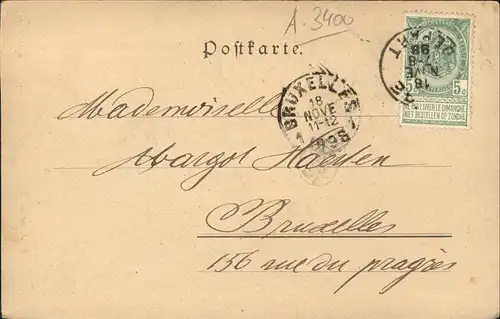 A-3400
Postkarte.
Mademoiselle
Margot Haenten
Bruxelles
156 rue du progrès
BRUXELLES
18
NOVE
11-12
1898
1 1
DEPART
18
NOVE
7-8
98
5c
NE PAS LIVRER LE DIMANCHE
NIET BESTELLEN OP ZONDAG